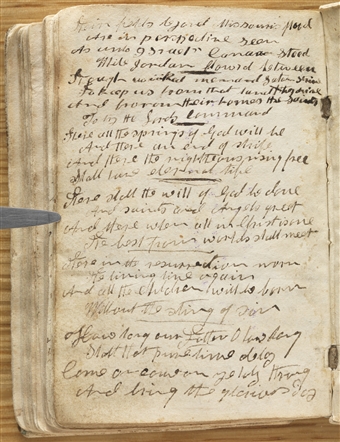 fields beyond Missouri's flood
Are in perspective seen
As unto Israel Canaan stood
While Jordan flowed between
Though wicked men and satan
To keep us from that land
And from their homes the saints
by the Lords Command
There all the springs of God will be
And there an end of strife
And there the righteous rising free
Shall have eternal life
There shall the will of God be done
And saints and Angels greet
And there when all in Christ is one
The best from worlds shall meet
There in the resurrection morn
The living live again
And all the children will be born
Without the sting of sin
How long our Father O how long
Shall that pure time delay
Come on come on ye
And bring the glorious day